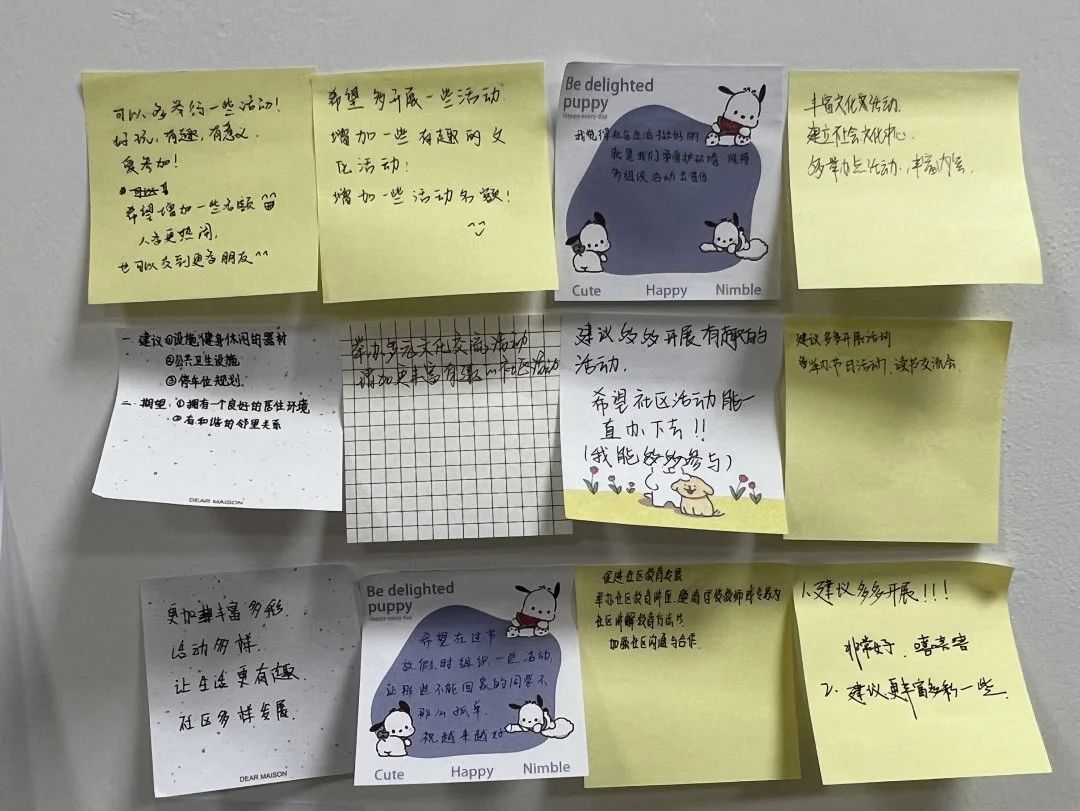 可以多举行一些活动!
好玩,有趣,有意义,
爱参加!
希望增加一些名额
人多更热闹,
也可以交到更多朋友^^
希望多开展一些活动.
增加一些有趣的文
化活动;
增加一些活动名额!
Be delighted
puppy
Happy every day
我觉得社区生活挺好的
就是我们要爱护环境
多组织活动
Cute Happy Nimble
丰富文化宣活动.
建立社会文化中心.
多举办点活动.丰富内容.
一.建议①设施:健身休闲的器材
②公共卫生设施
③停车位规划.
二.期望:①拥有一个良好的居住环境
②有和谐的邻里关系
DEAR MAISON
举办多元文化交流活动
增加更丰富有趣的社区活动
建议多多开展有趣的
活动.
希望社区活动能一
直办下去!!
(我能多多参与)
建议多多开展活动
多举办节日活动,读书交流会.
更加丰富多彩
活动多样.
让生活更有趣.
社区多样发展.
DEAR MAISON
Be delighted
puppy
Happy every day
希望在过节
放假时组织一些活动,
让那些不能回家的同学不
那么孤单.
祝越来越好
Cute Happy Nimble
促进社区教育发展
举办社区教育讲座.邀请学校教师或专家为
社区讲解教育方法.
加强社区沟通与合作.
1.建议多多开展!!!
非常好.嘻嘻嘻
2.建议更丰富多彩一些.